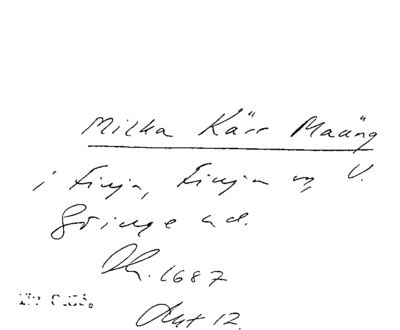 Milka Kärr Maäng
i Finja, Finja sn, V.
Göinge hd.
Dh. 1687
Avt 12.